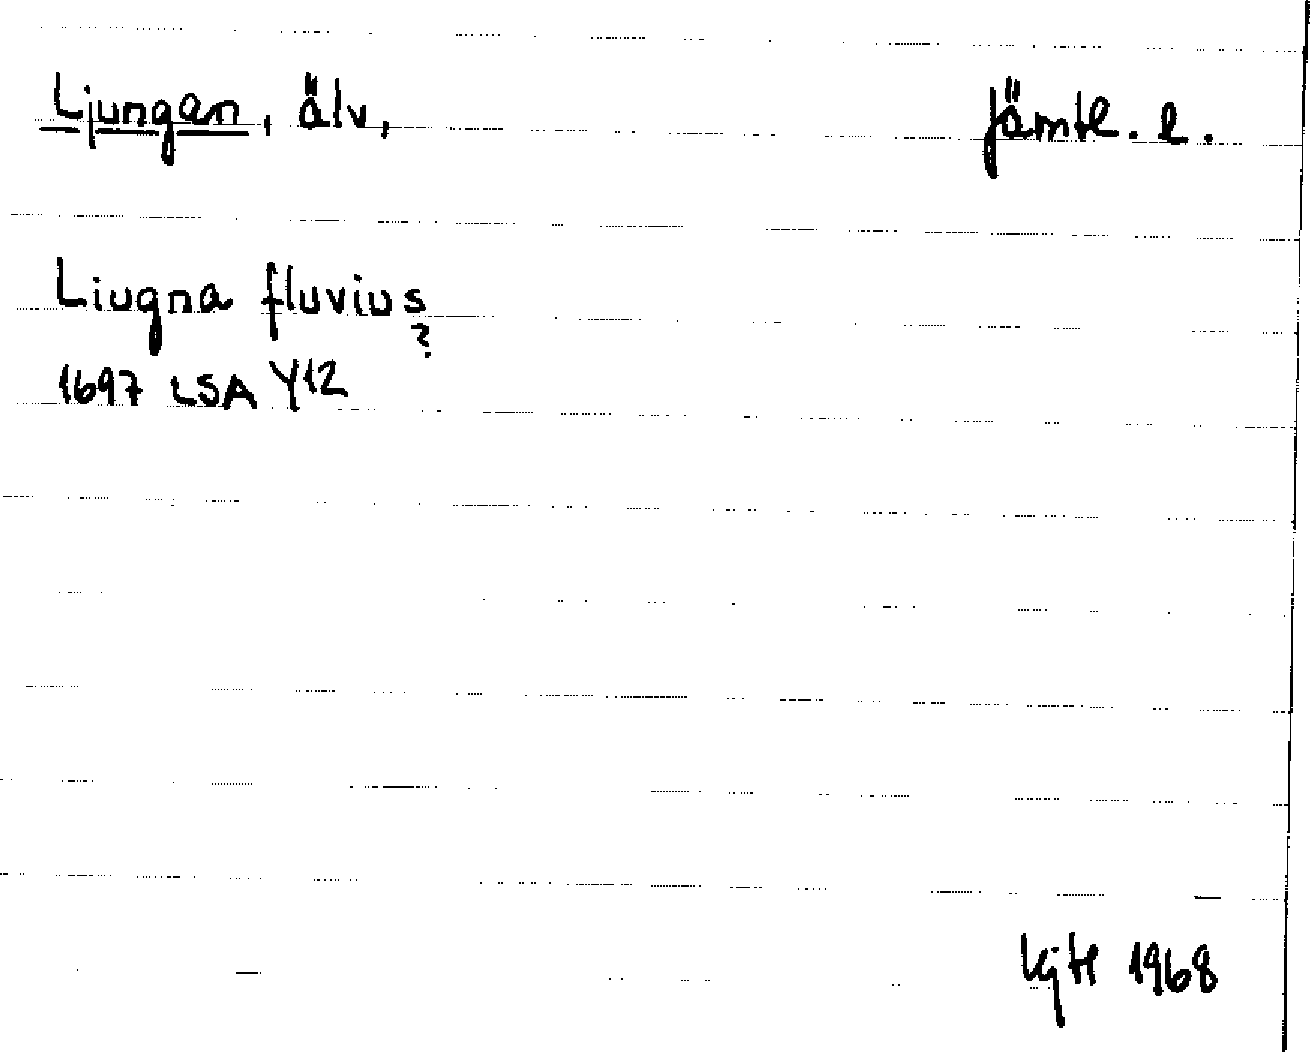 Ljungan, älv, Jämtl. l.
Liugna fluvius
?
1697 LSA Y12
1968